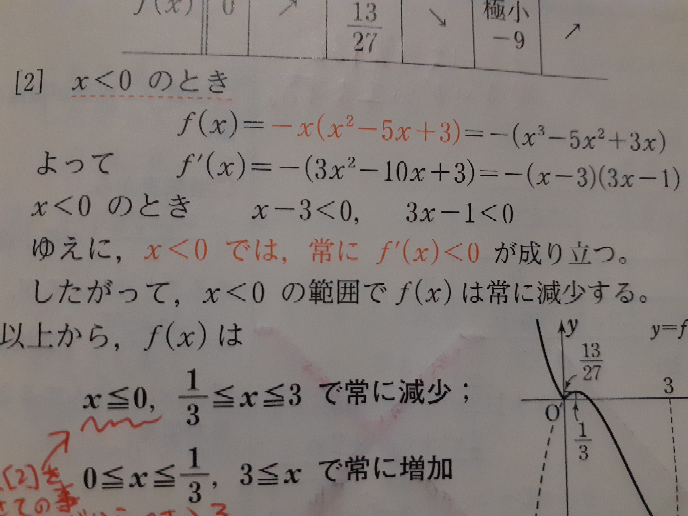 f(x) 0 ↗ 13/27 ↘ 極小 −9 ↗
[2] x<0 のとき
f(x)=−x(x²−5x+3)=−(x³−5x²+3x)
よって f′(x)=−(3x²−10x+3)=−(x−3)(3x−1)
x<0 のとき x−3<0, 3x−1<0
ゆえに，x<0 では，常に f′(x)<0 が成り立つ。
したがって，x<0 の範囲で f(x) は常に減少する。
以上から，f(x) は
x≦0, 1/3≦x≦3 で常に減少；
0≦x≦1/3, 3≦x で常に増加
y y=f
13/27
3
O
1/3
[2]を
ての事